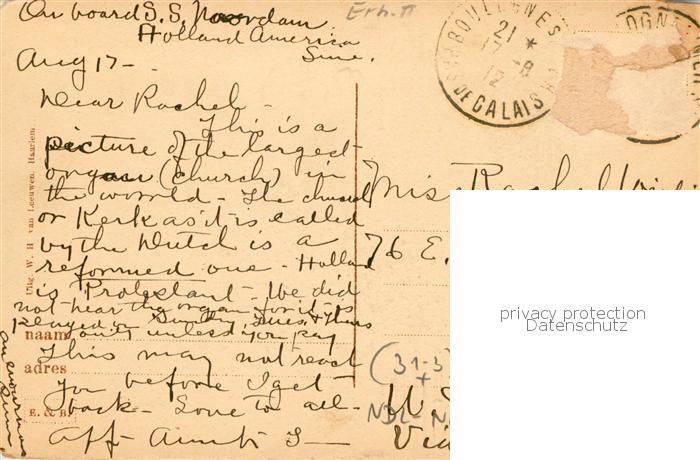 On board S.S. Noordam
Erh. II
Holland America
Line.
Aug 17 -
Dear Rachel -
This is a
picture of the largest
organ (church) in
the world - The church
or Kerk as it is called
by the Dutch is a
reformed one - Holland
is Protestant - We did
not hear the organ for it is
played on Sundays, Tues & Thurs
only unless you pay
This may not reach
you before I get
back - Love to all -
Aff - Aunt S -
Uitg. W. H. van Leeuwen, Haarlem
naam
adres
E. & B.
BOULOGNE
21 *
17 -8
12
PAS DE CALAIS
OGNE
Miss Rachel
76 E.
(31-3
+
NDL - N
privacy protection
Datenschutz